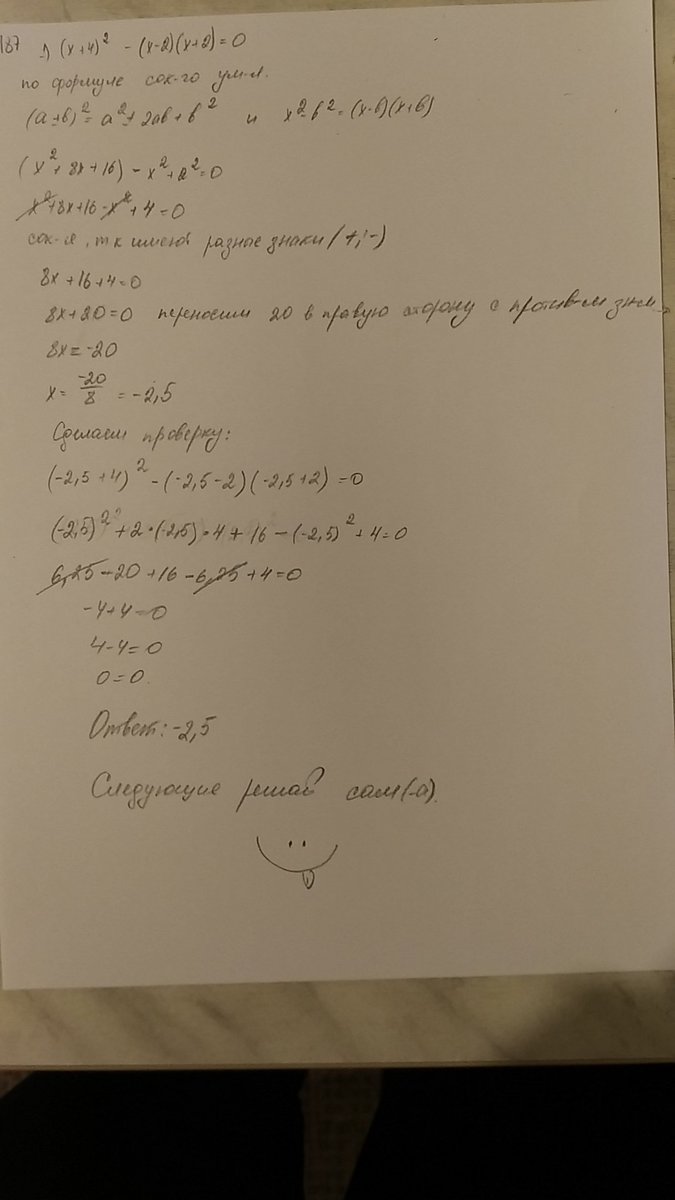 187 1) (x+4)² - (x-2)(x+2)=0
по формуле сок-го ум-я.
(a±b)²=a²±2ab+b² и x²-b²=(x-b)(x+b)
(x²+8x+16)-x²+2²=0
x²+8x+16-x²+4=0
сок-я, т к имеют разные знаки (+,-)
8x+16+4=0
8x+20=0 переносим 20 в правую сторону с против-м знам.
8x=-20
x= -20/8 = -2,5
Сделаем проверку:
(-2,5+4)²-(-2,5-2)(-2,5+2)=0
(-2,5)²+2·(-2,5)·4+16-(-2,5)²+4=0
6,25-20+16-6,25+4=0
-4+4=0
4-4=0
0=0.
Ответ: -2,5
Следующие решай сам(-а).